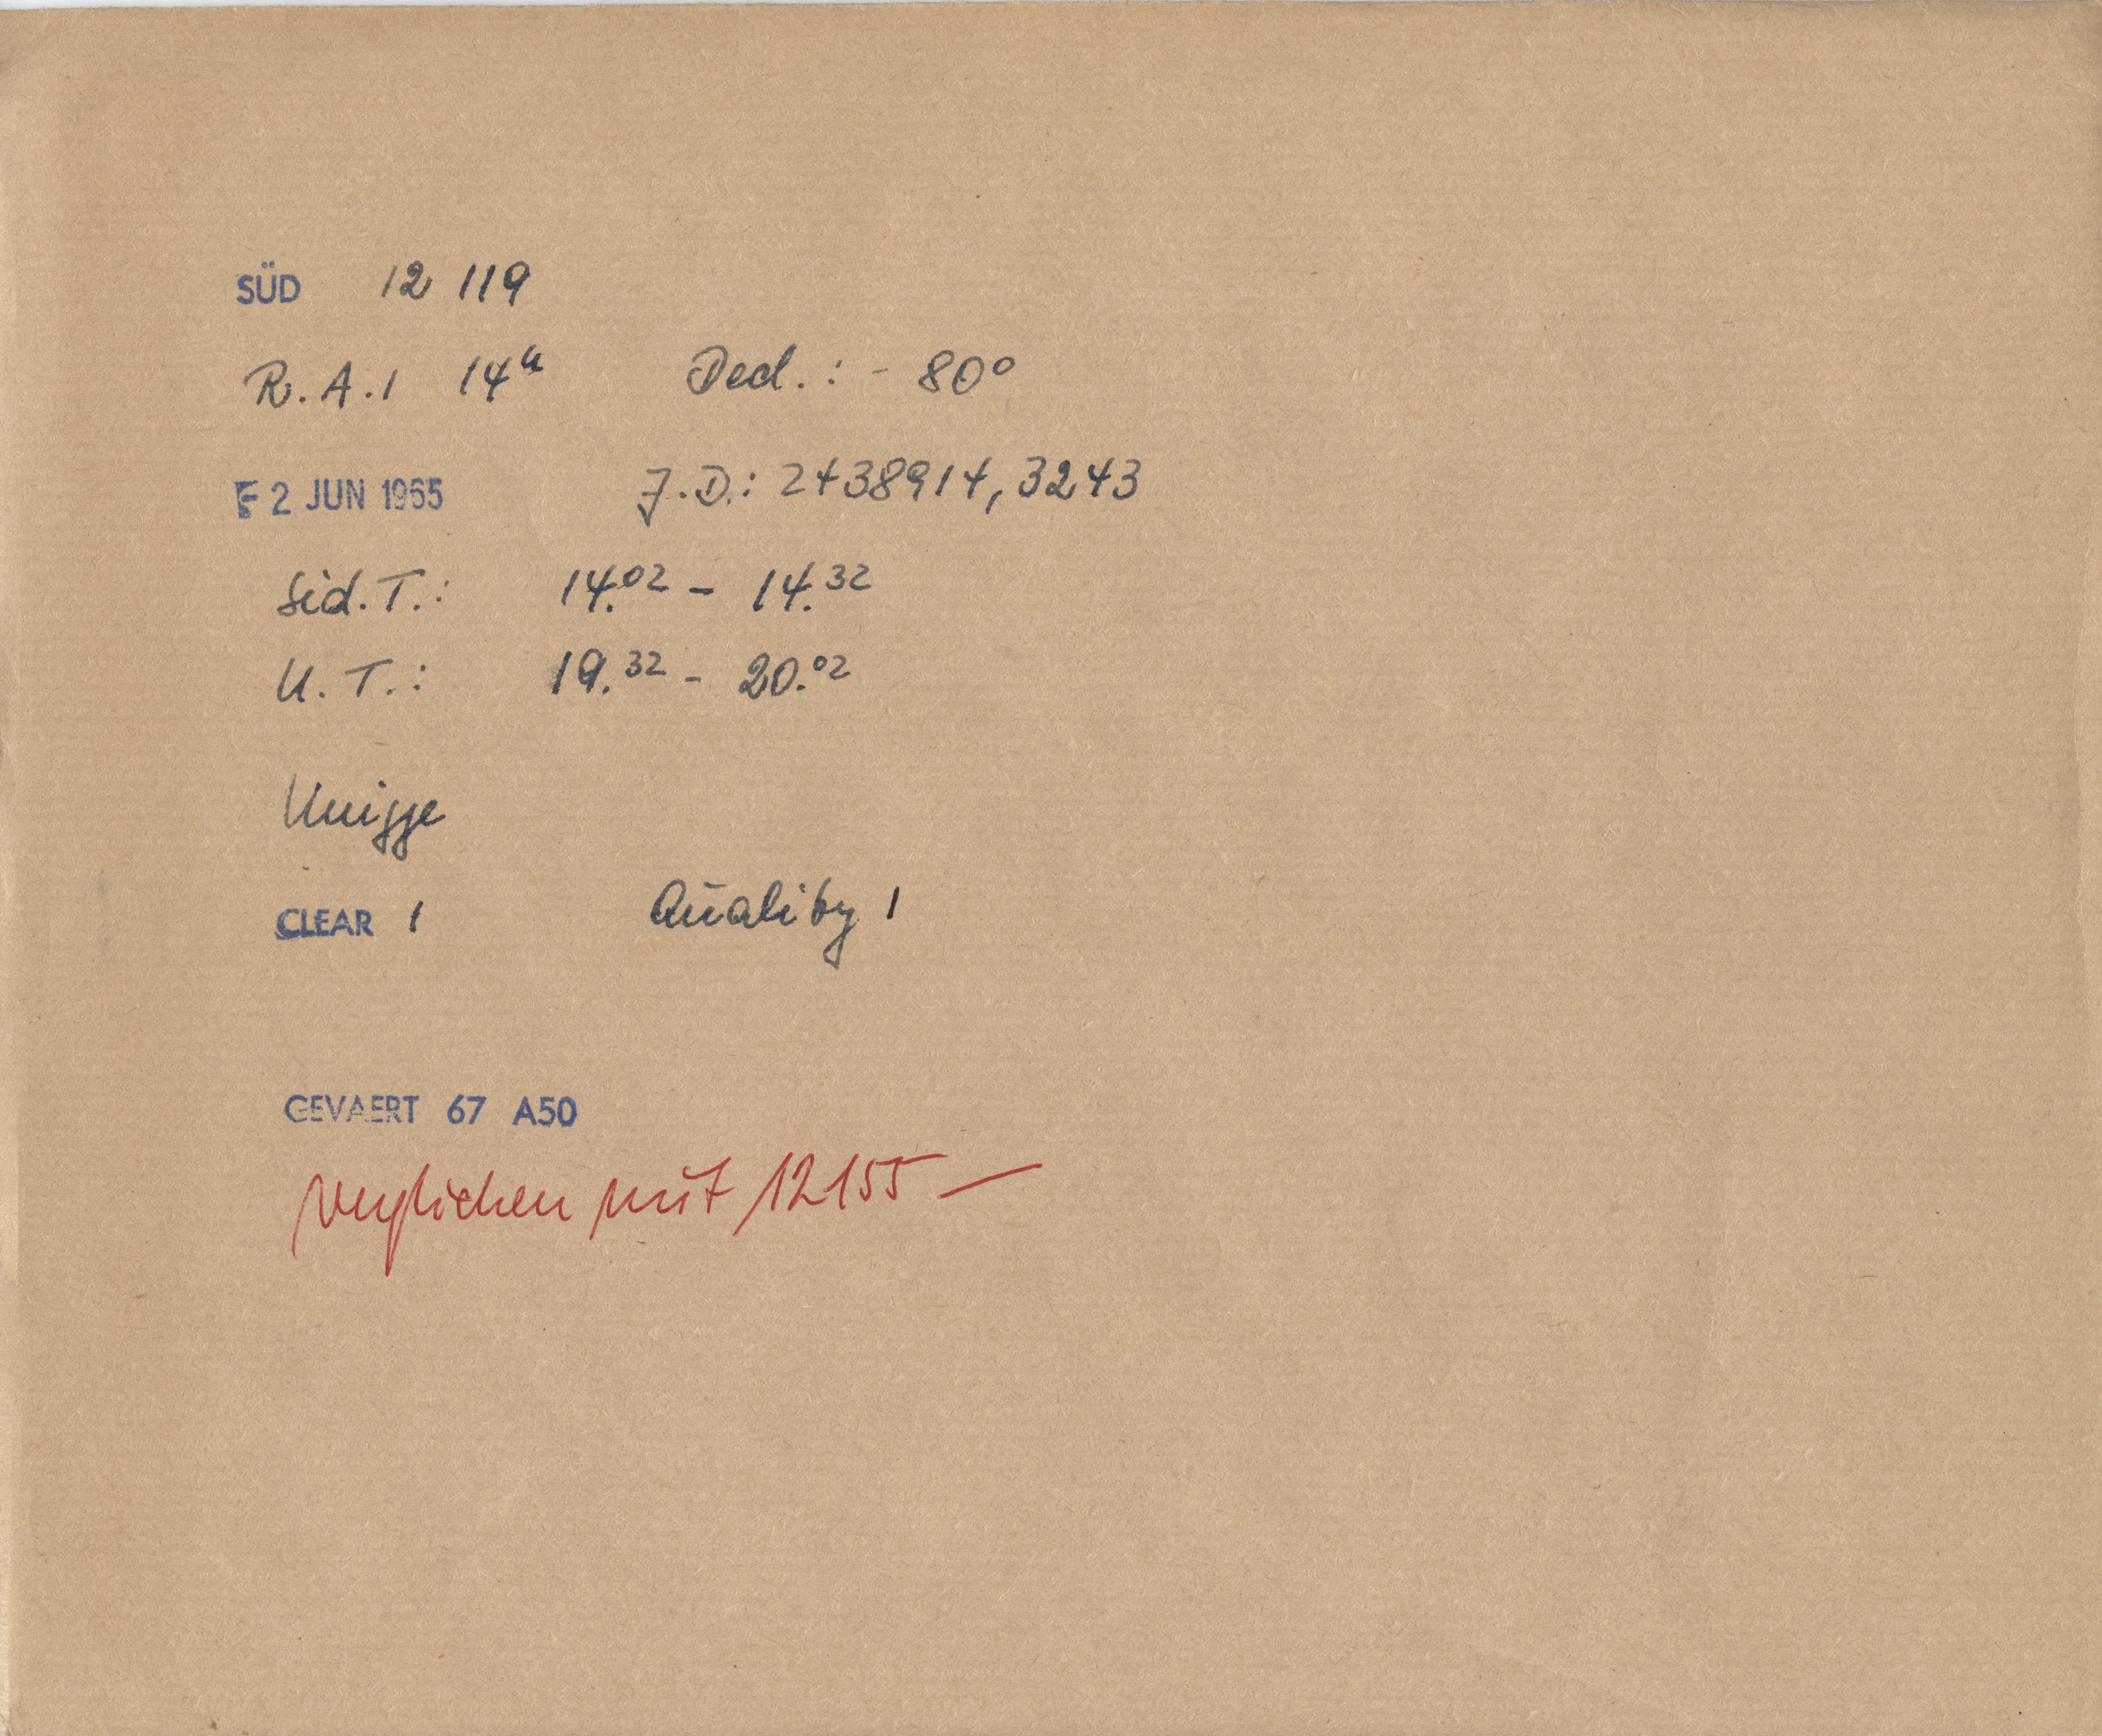 SÜD 12 119
R.A.: 14h Decl.: - 80°
2 JUN 1965 J.D.: 2438914,3243
Sid.T.: 14.02 - 14.32
U.T.: 19.32 - 20.02
Knigge
CLEAR 1 Quality 1
GEVAERT 67 A50
verglichen mit 12155 —